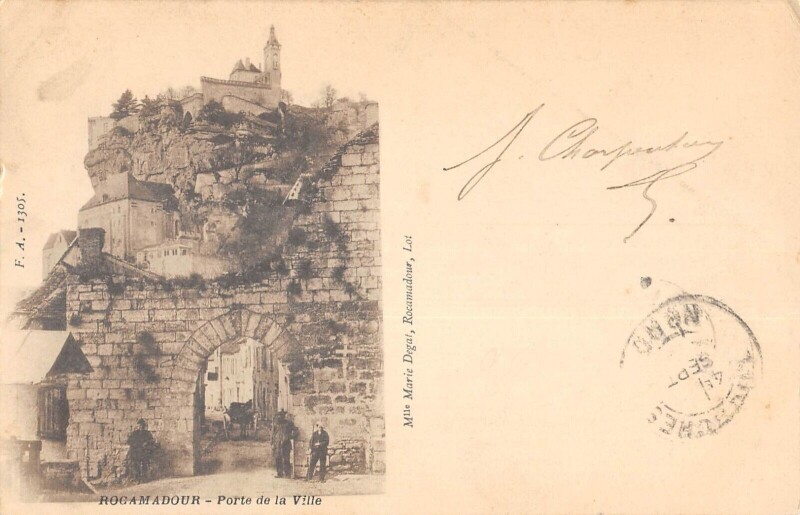 F. A. - 1305.
ROCAMADOUR – Porte de la Ville
Mlle Marie Degat, Rocamadour, Lot
J. Charpentier
SEPT